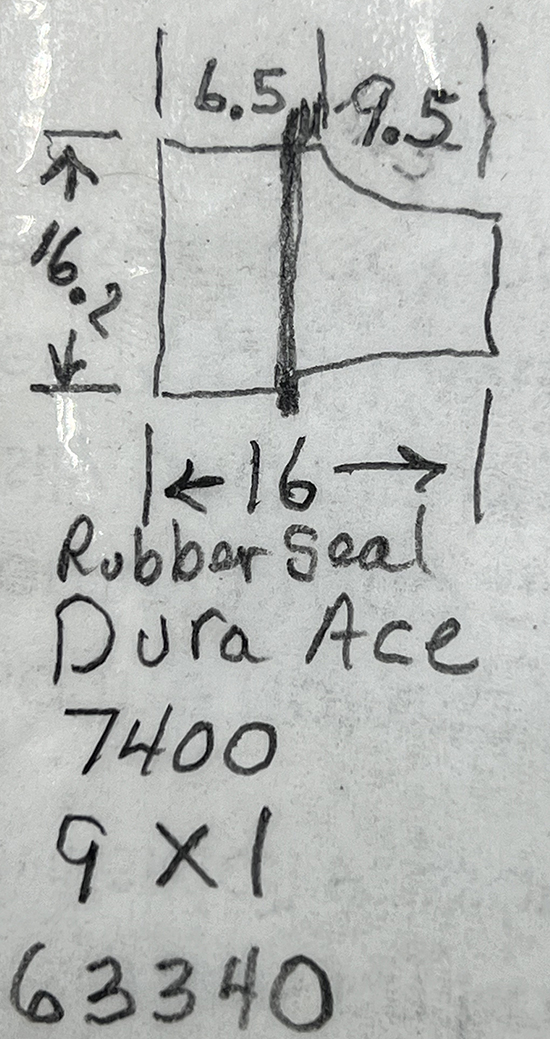 6.5 9.5
16.2
16
Rubber Seal
Dura Ace
7400
9 X 1
63340